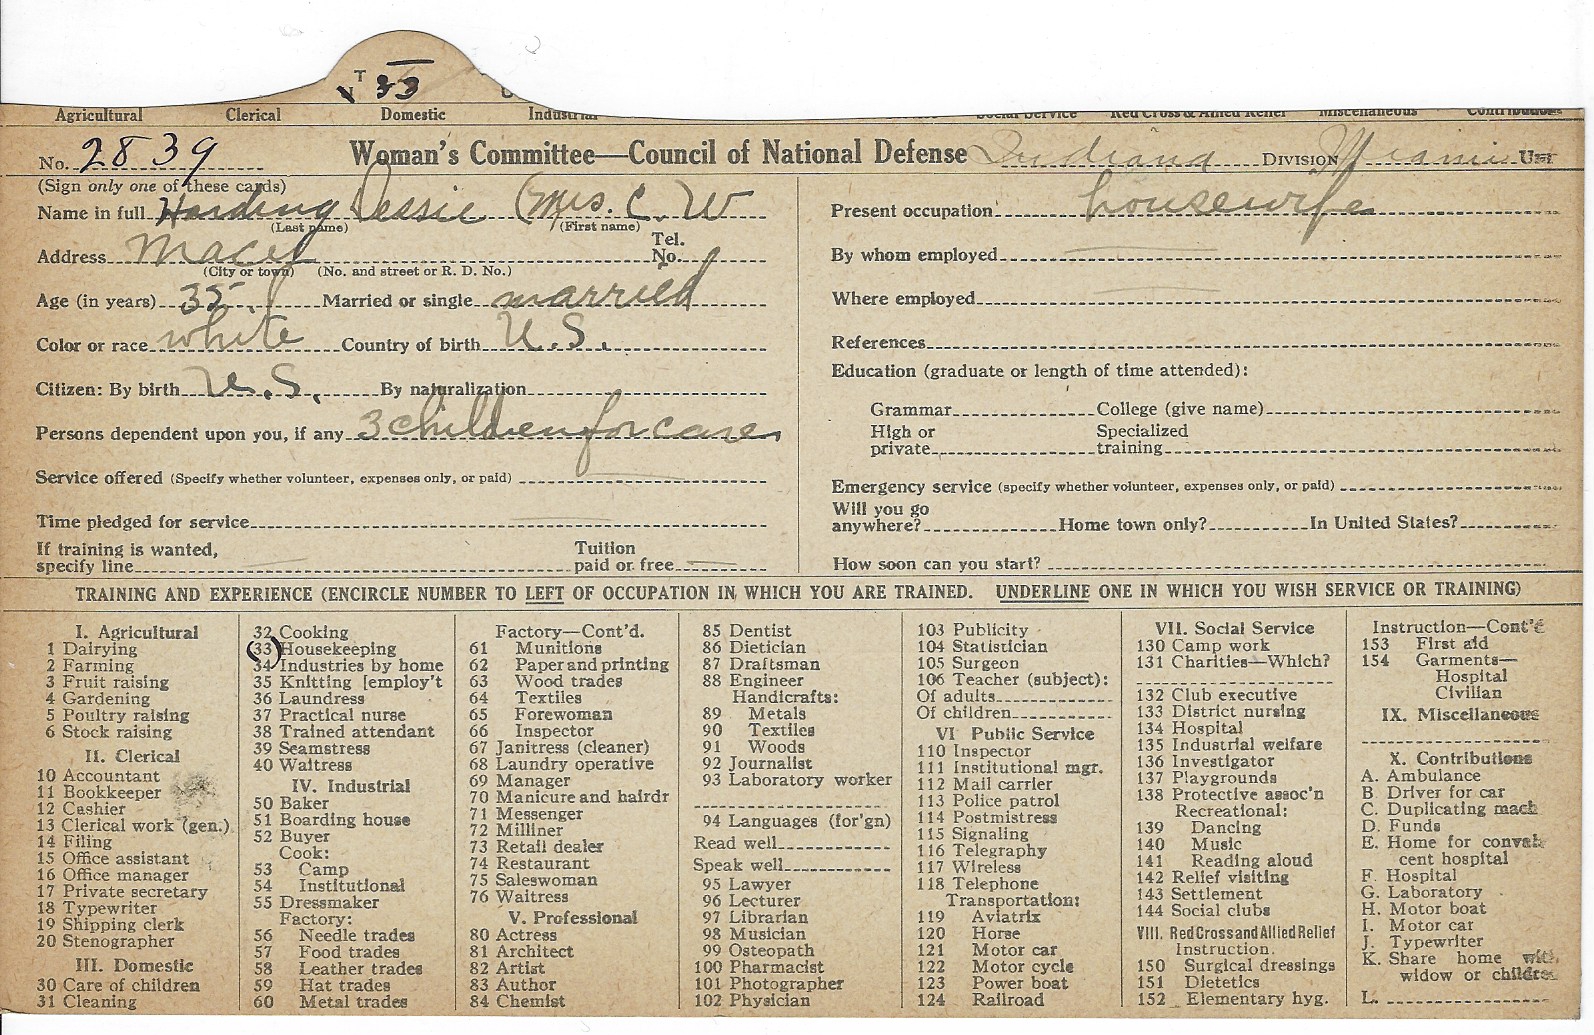 T
33
Agricultural Clerical Domestic Industrial Social Service Red Cross & Allied Relief Miscellaneous Contributions
No. 2839 Woman's Committee—Council of National Defense Indiana DIVISION Miami Unit
(Sign only one of these cards)
Name in full Harding Dessie (Mrs. C. W
(Last name) (First name)
Address Macy Tel. No.
(City or town) (No. and street or R. D. No.)
Age (in years) 35 Married or single married
Color or race white Country of birth U.S.
Citizen: By birth U.S. By naturalization
Persons dependent upon you, if any 3 children for care
Service offered (Specify whether volunteer, expenses only, or paid)
Time pledged for service
If training is wanted, specify line Tuition paid or free
Present occupation housewife
By whom employed
Where employed
References
Education (graduate or length of time attended):
Grammar College (give name)
High or private Specialized training
Emergency service (specify whether volunteer, expenses only, or paid)
Will you go anywhere? Home town only? In United States?
How soon can you start?
TRAINING AND EXPERIENCE (ENCIRCLE NUMBER TO LEFT OF OCCUPATION IN WHICH YOU ARE TRAINED. UNDERLINE ONE IN WHICH YOU WISH SERVICE OR TRAINING)
I. Agricultural
1 Dairying
2 Farming
3 Fruit raising
4 Gardening
5 Poultry raising
6 Stock raising
II. Clerical
10 Accountant
11 Bookkeeper
12 Cashier
13 Clerical work (gen.)
14 Filing
15 Office assistant
16 Office manager
17 Private secretary
18 Typewriter
19 Shipping clerk
20 Stenographer
III. Domestic
30 Care of children
31 Cleaning
32 Cooking
(33) Housekeeping
34 Industries by home
35 Knitting [employ't
36 Laundress
37 Practical nurse
38 Trained attendant
39 Seamstress
40 Waitress
IV. Industrial
50 Baker
51 Boarding house
52 Buyer
Cook:
53 Camp
54 Institutional
55 Dressmaker
Factory:
56 Needle trades
57 Food trades
58 Leather trades
59 Hat trades
60 Metal trades
Factory—Cont'd.
61 Munitions
62 Paper and printing
63 Wood trades
64 Textiles
65 Forewoman
66 Inspector
67 Janitress (cleaner)
68 Laundry operative
69 Manager
70 Manicure and hairdr
71 Messenger
72 Milliner
73 Retail dealer
74 Restaurant
75 Saleswoman
76 Waitress
V. Professional
80 Actress
81 Architect
82 Artist
83 Author
84 Chemist
85 Dentist
86 Dietician
87 Draftsman
88 Engineer
Handicrafts:
89 Metals
90 Textiles
91 Woods
92 Journalist
93 Laboratory worker
94 Languages (for'gn)
Read well
Speak well
95 Lawyer
96 Lecturer
97 Librarian
98 Musician
99 Osteopath
100 Pharmacist
101 Photographer
102 Physician
103 Publicity
104 Statistician
105 Surgeon
106 Teacher (subject):
Of adults
Of children
VI Public Service
110 Inspector
111 Institutional mgr.
112 Mail carrier
113 Police patrol
114 Postmistress
115 Signaling
116 Telegraphy
117 Wireless
118 Telephone
Transportation:
119 Aviatrix
120 Horse
121 Motor car
122 Motor cycle
123 Power boat
124 Railroad
VII. Social Service
130 Camp work
131 Charities—Which?
132 Club executive
133 District nursing
134 Hospital
135 Industrial welfare
136 Investigator
137 Playgrounds
138 Protective assoc'n
Recreational:
139 Dancing
140 Music
141 Reading aloud
142 Relief visiting
143 Settlement
144 Social clubs
VIII. Red Cross and Allied Relief
Instruction.
150 Surgical dressings
151 Dietetics
152 Elementary hyg.
Instruction—Cont'd
153 First aid
154 Garments—
Hospital
Civilian
IX. Miscellaneous
X. Contributions
A. Ambulance
B. Driver for car
C. Duplicating mach
D. Funds
E. Home for conval-
cent hospital
F. Hospital
G. Laboratory
H. Motor boat
I. Motor car
J. Typewriter
K. Share home with
widow or children
L.